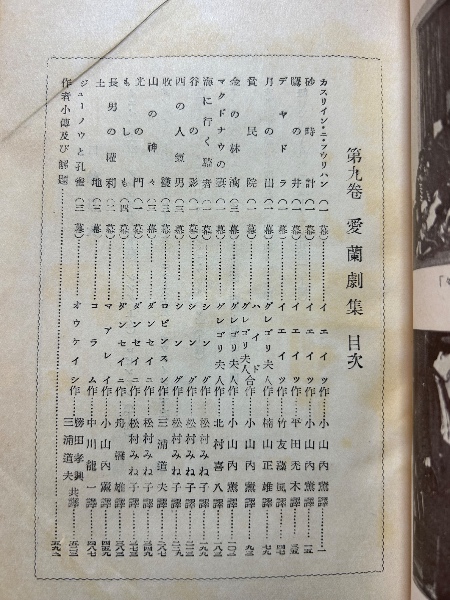 第九卷 愛蘭劇集 目次
カスリイン・ニ・フウリハン(一幕)……イエイツ作…小山內薰譯…一
砂時計(一幕)……イエイツ作…小山內薰譯…一五
鷹の井(一幕)……イエイツ作…平田禿木譯…三五
デヤドラ(一幕)……イエイツ作…竹友藻風譯…四七
月の出(一幕)……グレゴリ夫人作…楠山正雄譯…七九
貧民院(一幕)……ハイド グレゴリ夫人合作…小山內薰譯…九三
金の林檎(三幕)……グレゴリ夫人作…小山內薰譯…一〇三
マクドナウの妻(一幕)……グレゴリ夫人作…北村喜八譯…一八三
海に行く騎者(一幕)……シング作…松村みね子譯…一九九
谷の影(一幕)……シング作…松村みね子譯
西の人氣男(三幕)……シング作…松村みね子譯
收穫(三幕)……ロビンスン作…三浦道夫譯
山の神々(三幕)……ダンセイニ作…松村みね子譯…三四九
光の門(一幕)……ダンセイニ作…松村みね子譯
もしも(四幕)……ダンセイニ作…舟橋雄譯…三八三
長男の權利(一幕)……マアレイ作…小山內薰譯…四五九
土地(三幕)……コラム作…中川龍一譯…四八七
ジューノウと孔雀(三幕)……オウケイシ作…勝田孝興 三浦道夫共譯
作者小傳及び解題……五九三